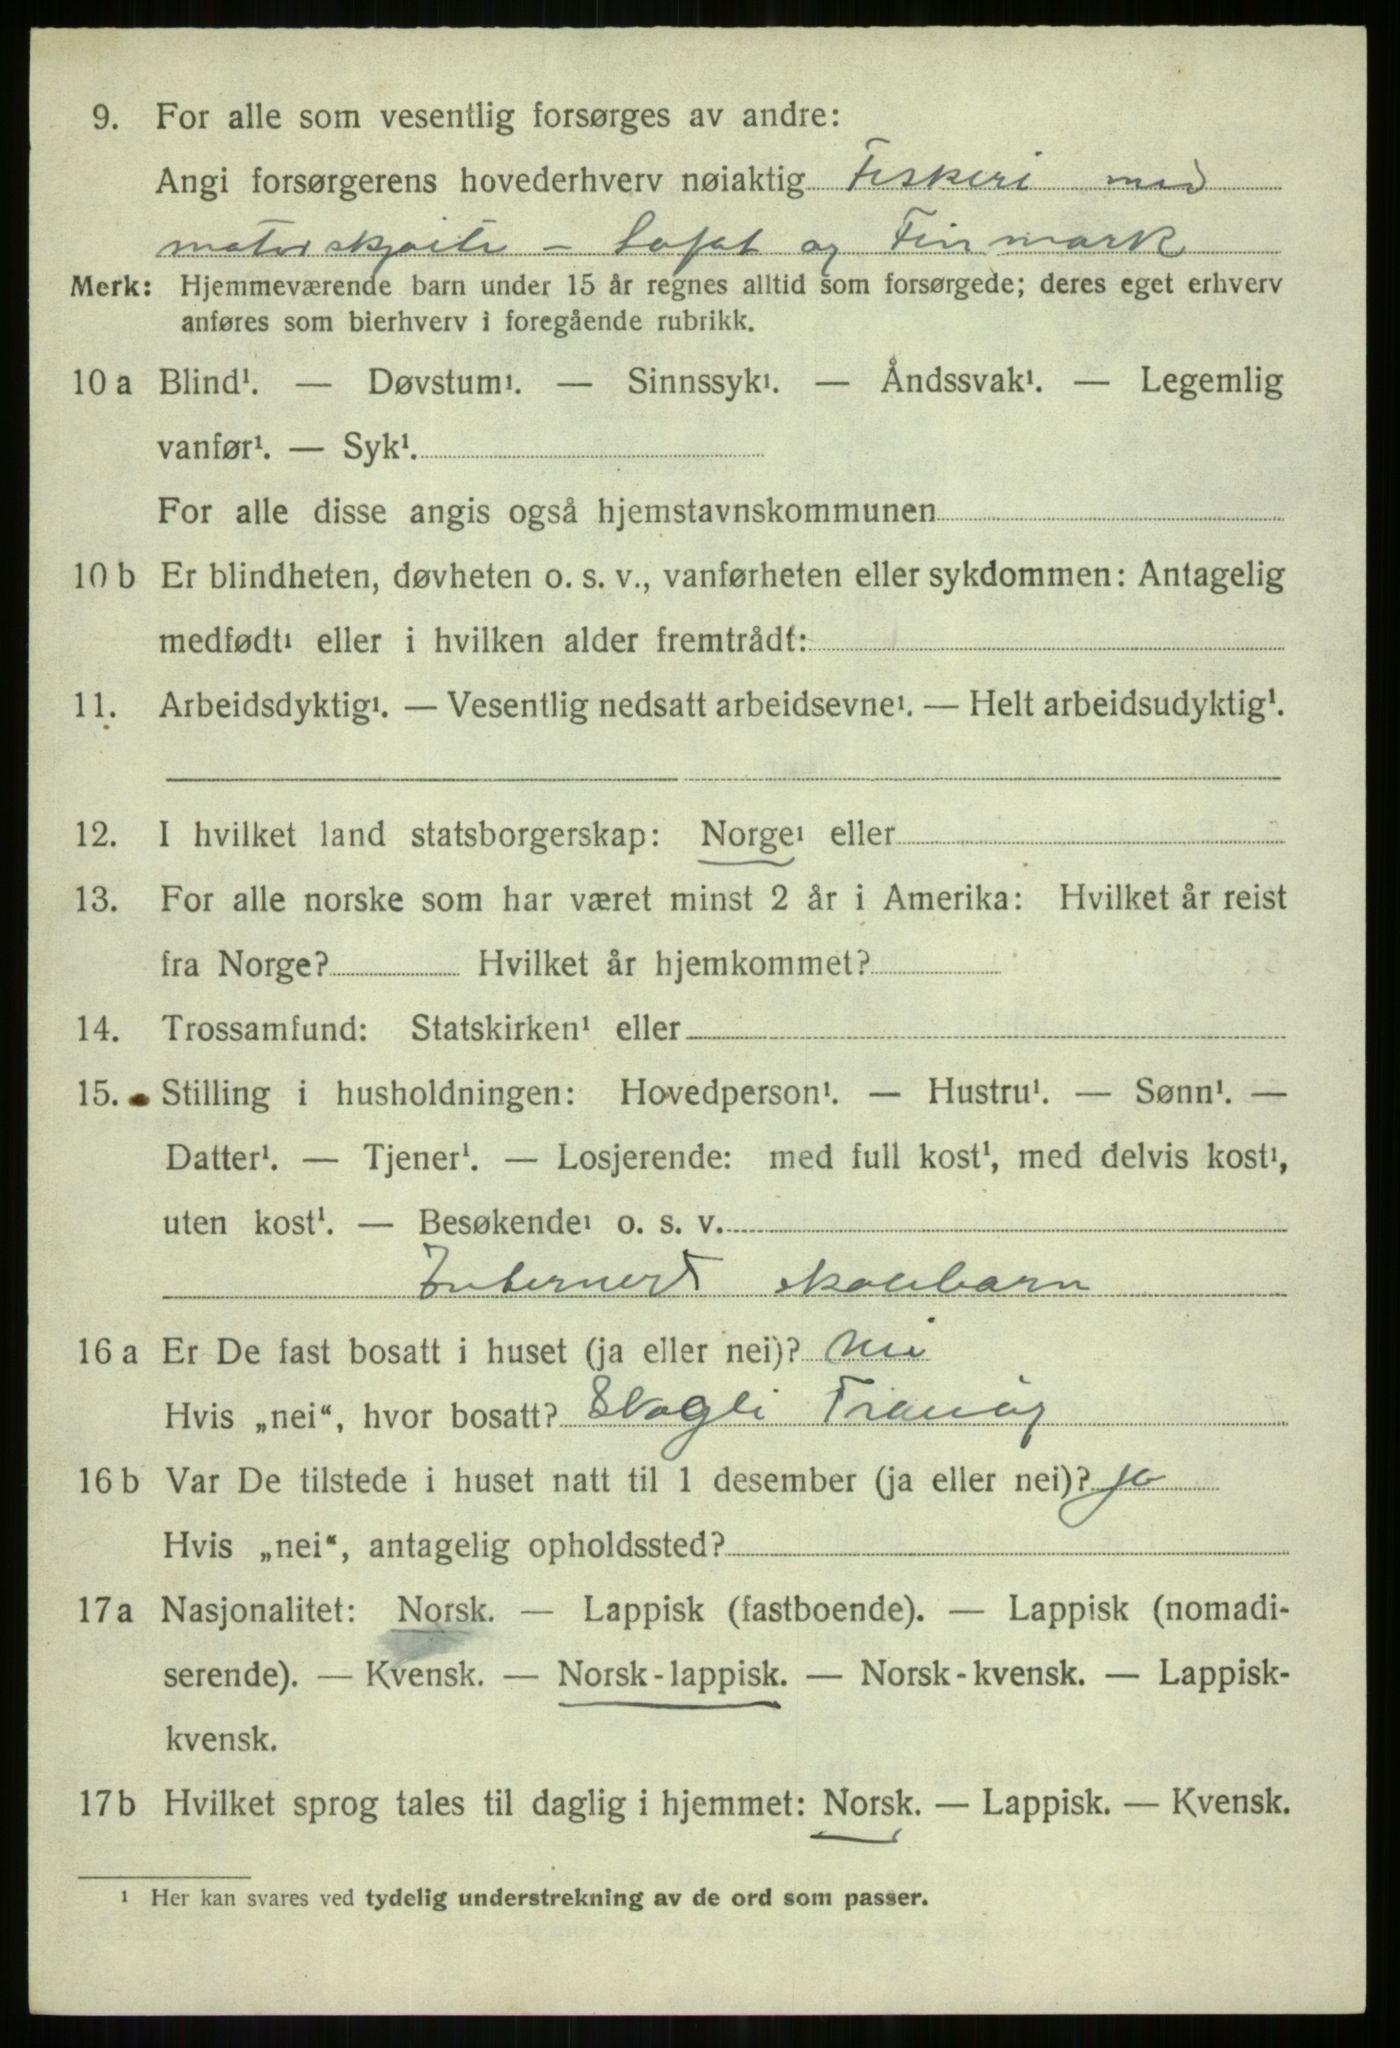 9. For alle som vesentlig forsørges av andre:
Angi forsørgerens hovederhverv nøiaktig Fiskeri med
motorskjøite – Lofot og Finmark
Merk: Hjemmeværende barn under 15 år regnes alltid som forsørgede; deres eget erhverv
anføres som bierhverv i foregående rubrikk.
10 a Blind¹. — Døvstum¹. — Sinnssyk¹. — Åndssvak¹. — Legemlig
vanfør¹. — Syk¹.
For alle disse angis også hjemstavnskommunen
10 b Er blindheten, døvheten o. s. v., vanførheten eller sykdommen: Antagelig
medfødt¹ eller i hvilken alder fremtrådt:
11. Arbeidsdyktig¹. — Vesentlig nedsatt arbeidsevne¹. — Helt arbeidsudyktig¹.
12. I hvilket land statsborgerskap: Norge¹ eller
13. For alle norske som har været minst 2 år i Amerika: Hvilket år reist
fra Norge? Hvilket år hjemkommet?
14. Trossamfund: Statskirken¹ eller
15. Stilling i husholdningen: Hovedperson¹. — Hustru¹. — Sønn¹. —
Datter¹. — Tjener¹. — Losjerende: med full kost¹, med delvis kost¹,
uten kost¹. — Besøkende¹ o. s. v.
Internert skolebarn
16 a Er De fast bosatt i huset (ja eller nei)? nei
Hvis „nei“, hvor bosatt? Skogli Tranøy
16 b Var De tilstede i huset natt til 1 desember (ja eller nei)? ja
Hvis „nei“, antagelig opholdssted?
17 a Nasjonalitet: Norsk. — Lappisk (fastboende). — Lappisk (nomadi-
serende). — Kvensk. — Norsk-lappisk. — Norsk-kvensk. — Lappisk-
kvensk.
17 b Hvilket sprog tales til daglig i hjemmet: Norsk. — Lappisk. — Kvensk.
¹ Her kan svares ved tydelig understrekning av de ord som passer.